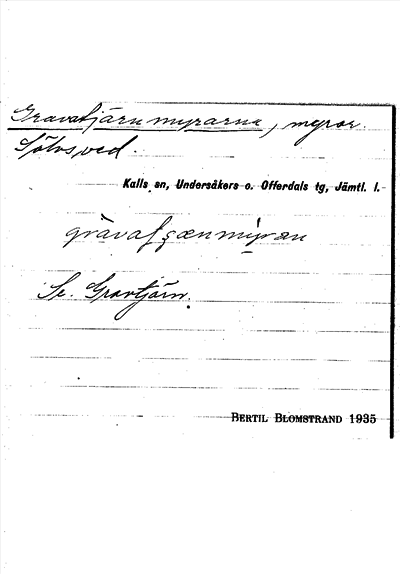 Gravatjärnmyrarna, myrar.
Sölvsved
Kalls sn, Undersåkers o. Offerdals tg, Jämtl. l.
Se. Gravtjärn.
BERTIL BLOMSTRAND 1935